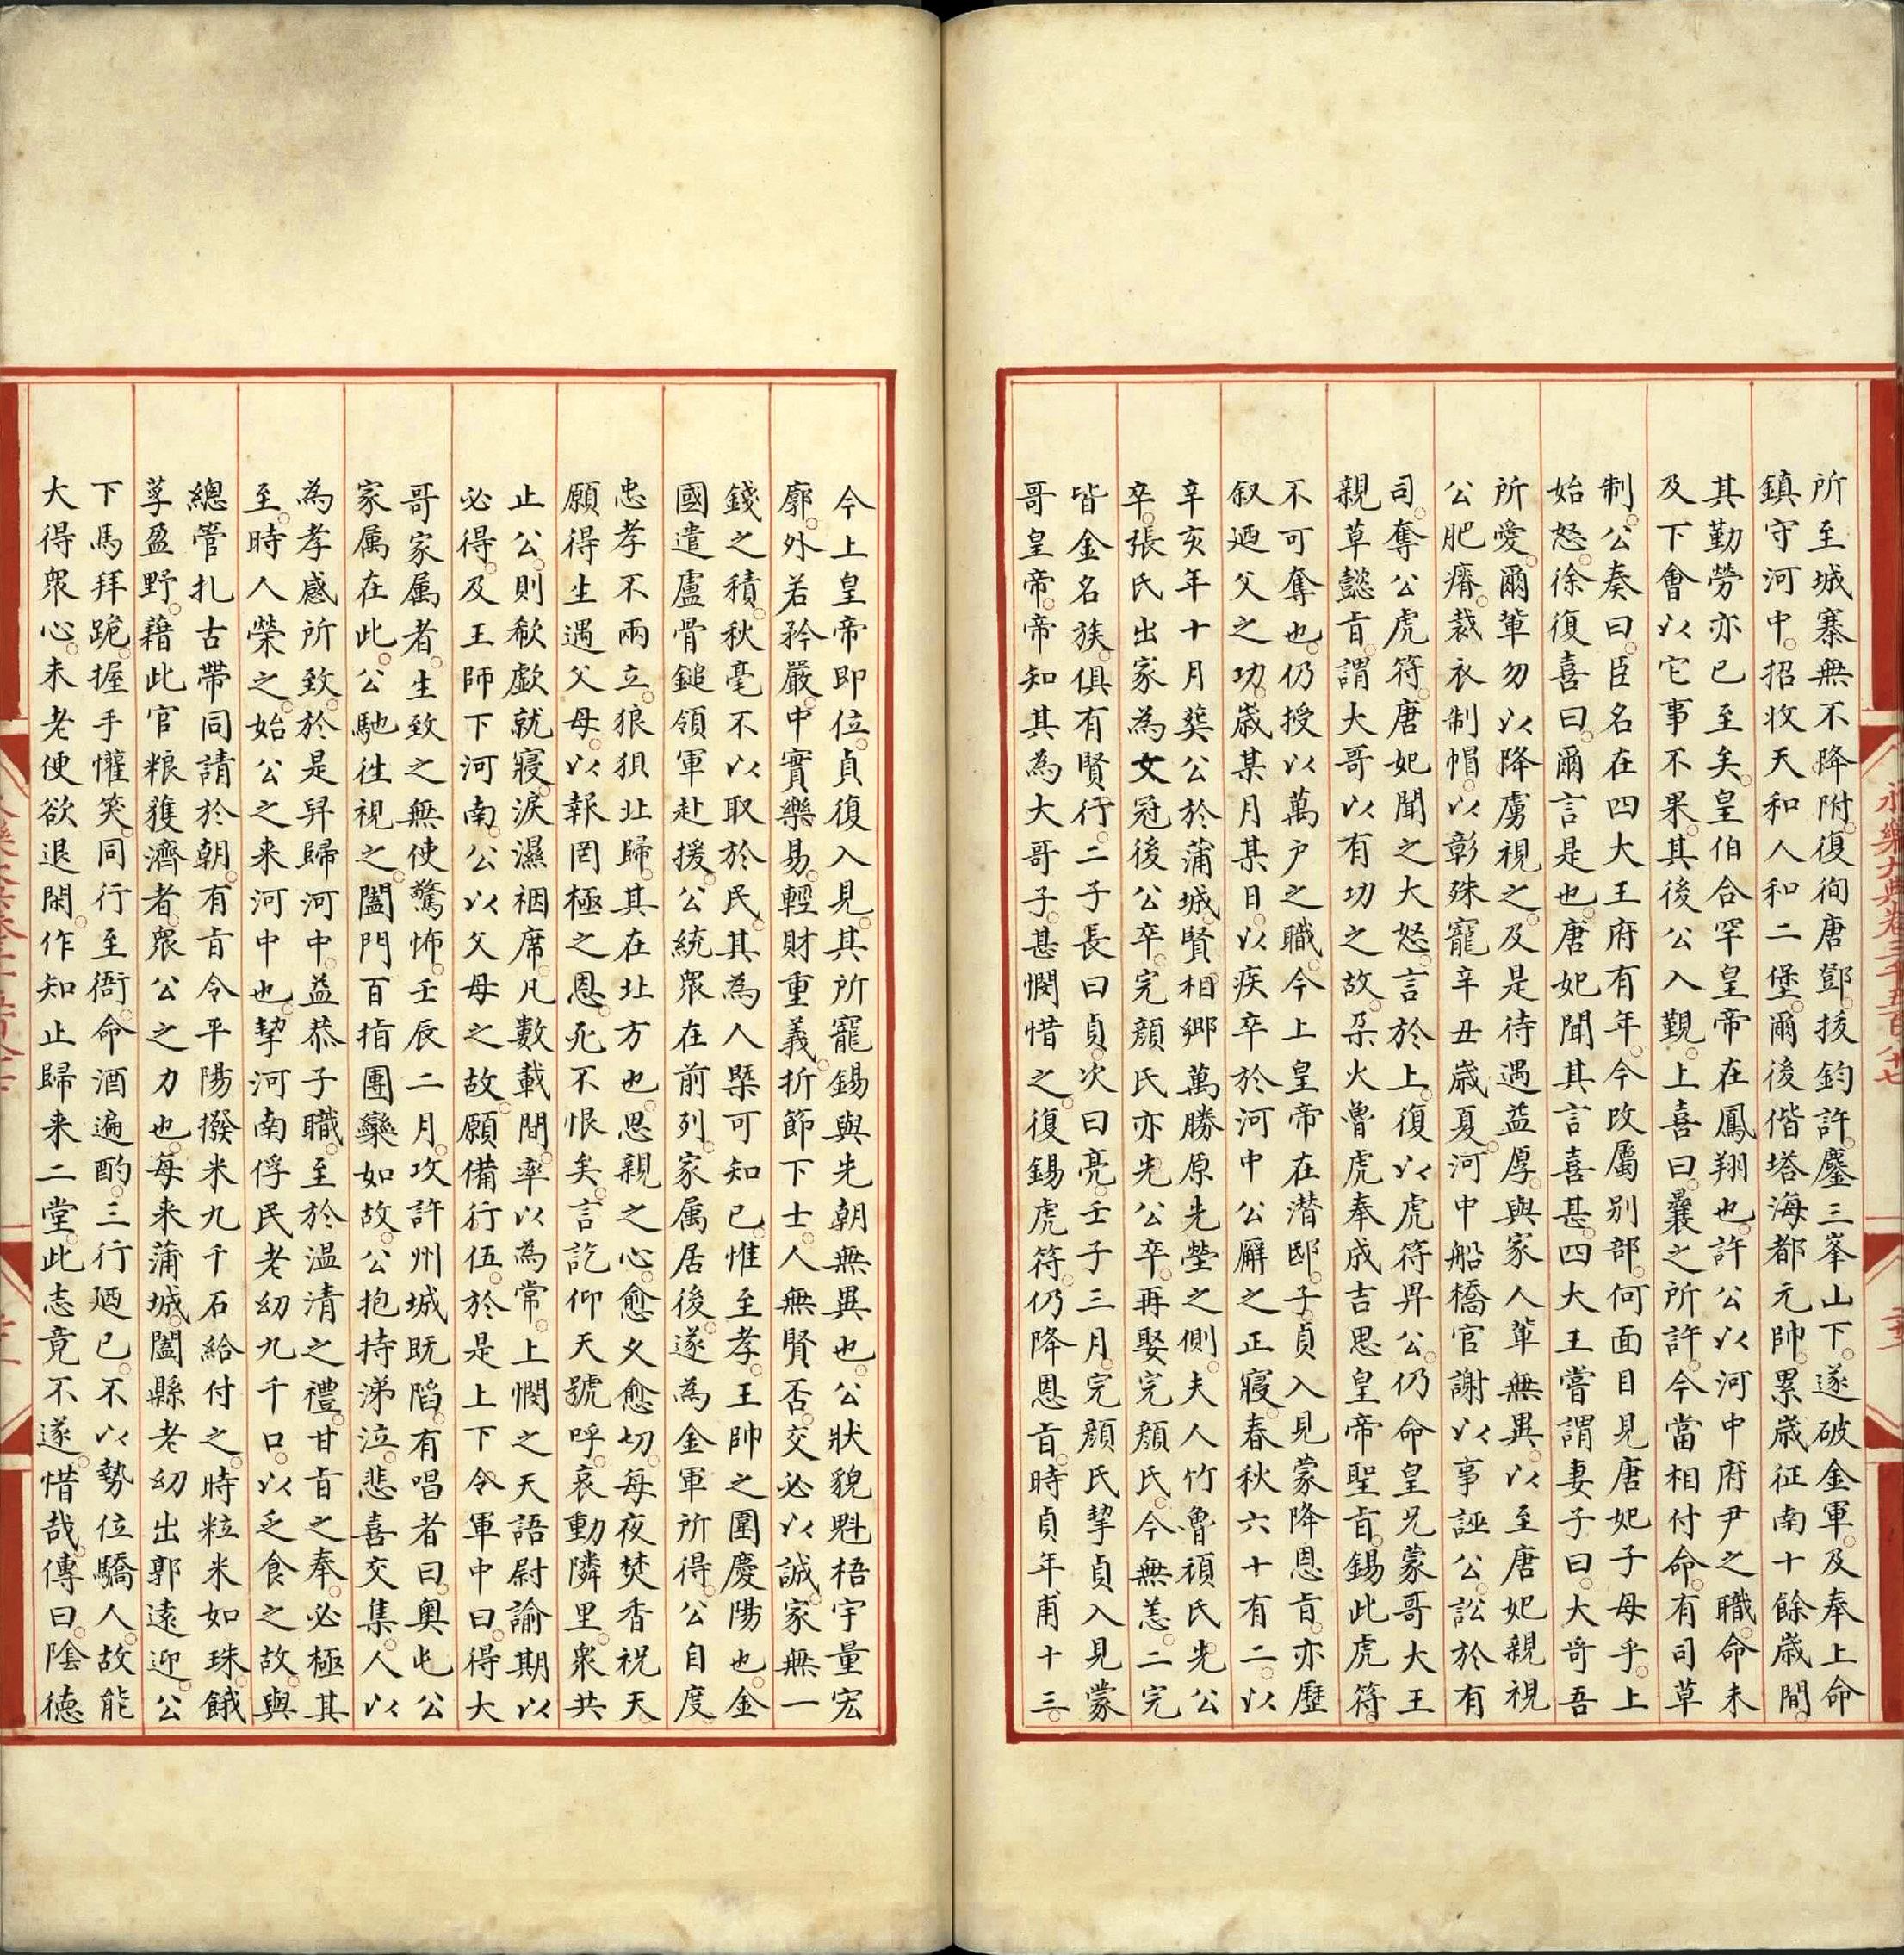 所至城寨無不降附復徇唐鄧拔鈞許鏖三峯山下遂破金軍及奉上命
鎮守河中招收天和人和二堡爾後偕塔海都元帥累歲征南十餘歲間
其勤勞亦已至矣皇伯合罕皇帝在鳳翔也許公以河中府尹之職命未
及下會以它事不果其後公入覲上喜曰曩之所許今當相付命有司草
制公奏曰臣名在四大王府有年今改屬别部何面目見唐妃子母乎上
始怒徐復喜曰爾言是也唐妃聞其言喜甚四大王嘗謂妻子曰大哥吾
所愛爾軰勿以降虜視之及是待遇益厚與家人軰無異以至唐妃親視
公肥瘠裁衣制帽以彰殊寵辛丑歲夏河中船橋官謝以事誣公訟於有
司奪公虎符唐妃聞之大怒言於上復以虎符畀公仍命皇兄蒙哥大王
親草懿旨謂大哥以有功之故朶火魯虎奉成吉思皇帝聖旨錫此虎符
不可奪也仍授以萬户之職今上皇帝在潛邸子貞入見蒙降恩旨亦歷
叙廼父之功歲某月某日以疾卒於河中公廨之正寢春秋六十有二以
辛亥年十月葬公於蒲城賢相鄉萬勝原先塋之側夫人竹魯頑氏先公
卒張氏出家為女冠後公卒完顔氏亦先公卒再娶完顔氏今無恙二完
皆金名族俱有賢行二子長曰貞次曰亮壬子三月完顔氏挈貞入見蒙
哥皇帝帝知其為大哥子甚憫惜之復錫虎符仍降恩旨時貞年甫十三
今上皇帝即位貞復入見其所寵錫與先朝無異也公狀貌魁梧宇量宏
廓外若矜嚴中實樂易輕財重義折節下士人無賢否交必以誠家無一
錢之積秋毫不以取於民其為人槩可知已惟至孝王帥之圍慶陽也金
國遣盧骨鎚領軍赴援公統衆在前列家属居後遂為金軍所得公自度
忠孝不兩立狼狽北歸其在北方也思親之心愈久愈切每夜焚香祝天
願得生遇父母以報罔極之恩死不恨矣言訖仰天號呼哀動隣里衆共
止公則欷歔就寢淚濕裀席凡數載間率以為常上憫之天語尉諭期以
必得及王師下河南公以父母之故願備行伍於是上下令軍中曰得大
哥家属者生致之無使驚怖壬辰二月攻許州城既陷有唱者曰奥屯公
家属在此公馳徃視之闔門百指團欒如故公抱持涕泣悲喜交集人以
為孝感所致於是舁歸河中益恭子職至於温清之禮甘旨之奉必極其
至時人榮之始公之来河中也挈河南俘民老幼九千口以乏食之故與
總管扎古帶同請於朝有旨令平陽撥米九千石給付之時粒米如珠餓
莩盈野藉此官粮獲濟者衆公之力也每来蒲城闔縣老幼出郭遠迎公
下馬拜跪握手懽笑同行至衙命酒遍酌三行廼已不以勢位驕人故能
大得衆心未老便欲退閑作知止歸来二堂此志竟不遂惜哉傳曰陰德